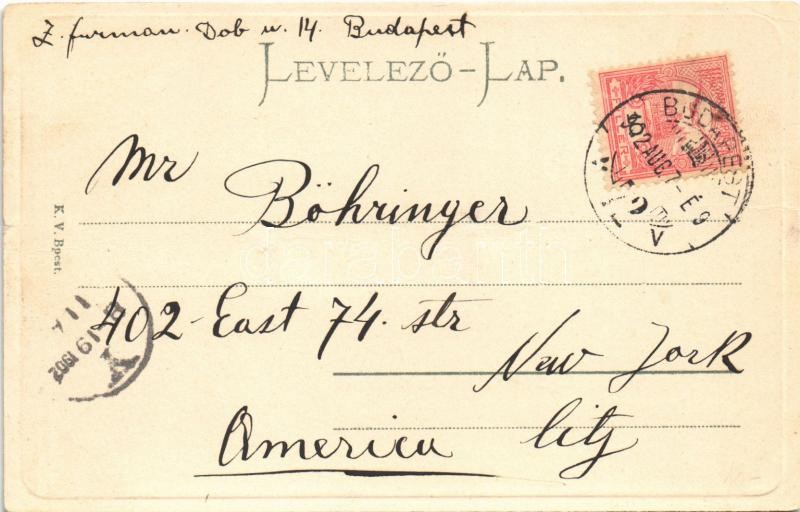 Z. furman. Dob u. 14. Budapest
LEVELEZŐ-LAP.
BUDAPEST
902 AUG 7 - E 9
V
Mr
Böhringer
K. V. Bpest.
402 - East 74. str
New Jork
America City
11 A
19 1902
Y